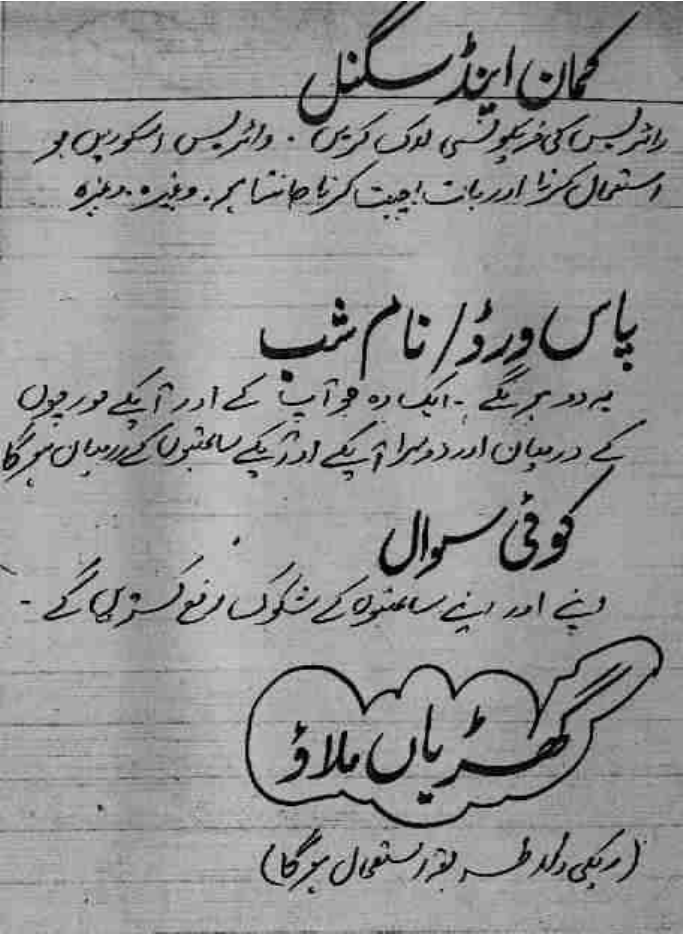 کمان اینڈ سگنل
وائرلیس کی فریکونسی لاک کریں ۔ وائرلیس اسکو دیں جو
استعمال کرنا اور بات چیت کرنا جانتا ہو ۔ وغیرہ وغیرہ
پاس ورڈ / نام شب
یہ دو ہونگے ۔ ایک وہ جو آپ کے اور آپکے مورچوں
کے درمیان اور دوسرا آپکے اور آپکے ساتھیوں کے درمیان ہوگا
کوئی سوال
اپنے اور اپنے ساتھیوں کے شکوک رفع کریں گے ۔
گھڑیاں ملاؤ
(ریکی والا استعمال ہوگا)